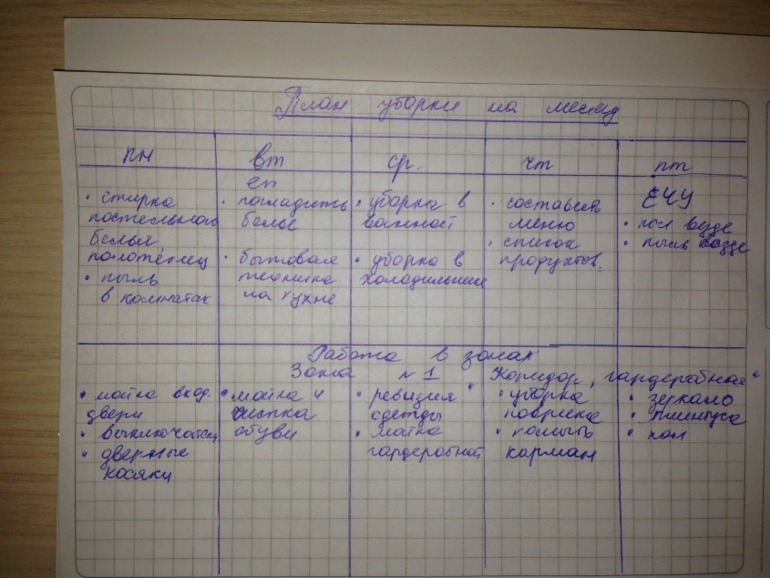 План уборки на месяц
пн вт ср. чт пт
• стирка
постельного
белья,
полотенец
• пыль
в комнатах
• погладить
белье
• бытовая
техника
на кухне
• уборка в
ванной
• уборка в
холодильнике
• составл
меню
• список
продуктов.
ЕЧУ
• пол везде
• пыль везде
Работа в зонах
Зона №1 "Коридор, гардеробная"
• мойка вход.
двери
• выключатели
• дверные
косяки
• мойка и
чистка
обуви
• ревизия
одежды
• мойка
гардеробной
• уборка
• помыть
карман
• зеркало
• плинтуса
• пол